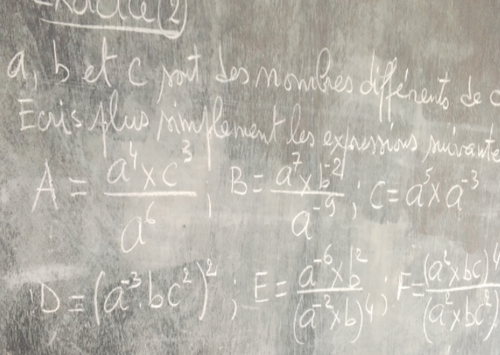 Exercice (2)
a, b et c sont des nombres différents de
Ecris plus simplement les expressions suivantes
A = \frac{a^4 \times c^3}{a^6} ; B = \frac{a^7 \times b^{-2}}{a^{-9}} ; C = a^5 \times a^{-3}
D = (a^{-3} bc^2)^2 ; E = \frac{a^{-6} \times b^2}{(a^{-2} \times b)^4} ; F = \frac{(a^2 \times bc)^4}{(a^2 \times bc^2)}